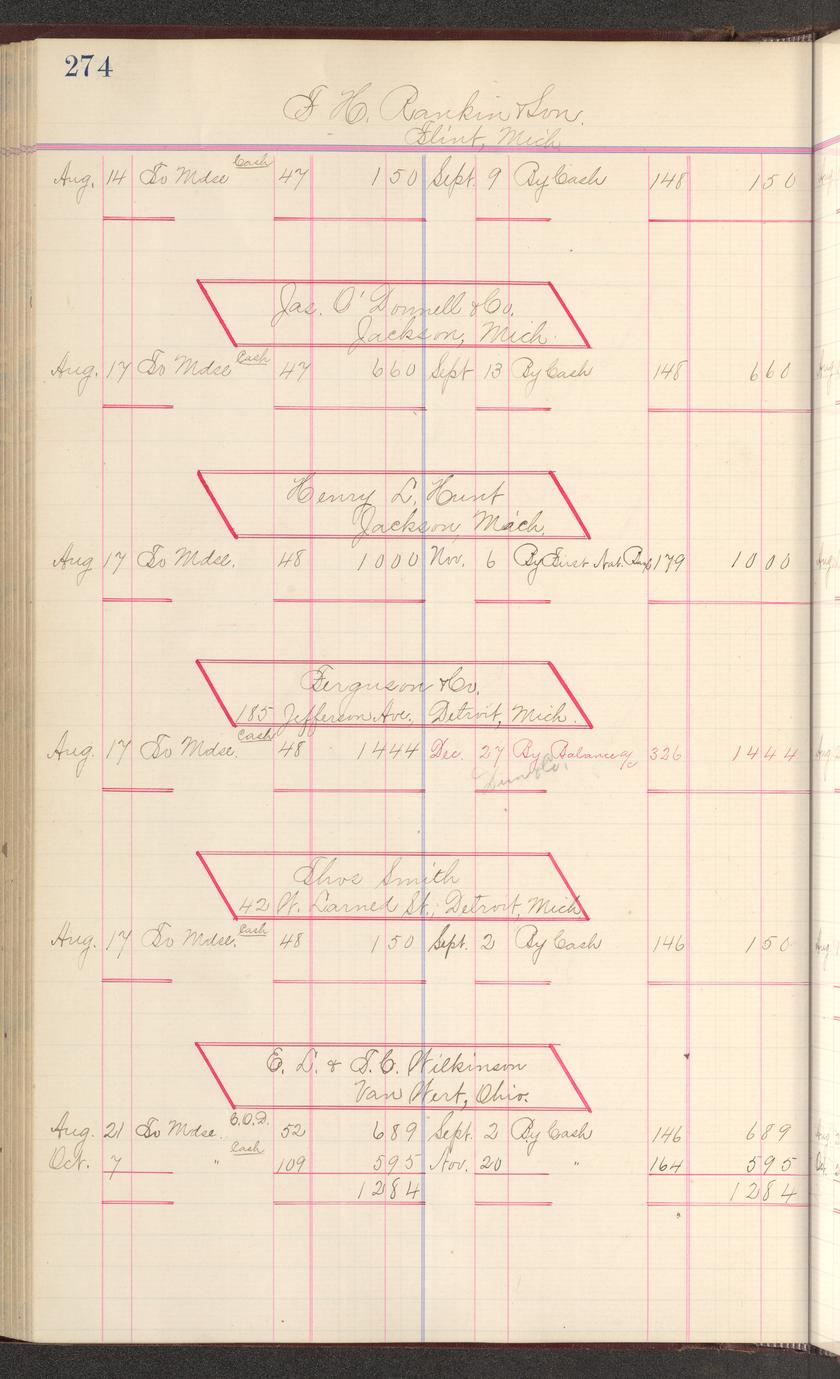 274
F H. Rankin & Son.
Flint, Mich
Aug. 14 To Mdse Cash 47 1 50 Sept. 9 By Cash 148 1 50
Jas. O'Donnell & Co.
Jackson, Mich.
Aug. 17 To Mdse Cash 47 6 60 Sept 13 By Cash 148 6 60
Henry L. Hunt
Jackson, Mich.
Aug 17 To Mdse. 48 10 00 Nov. 6 By First Nat. Bank 179 10 00
Ferguson & Co.
185 Jefferson Ave., Detroit, Mich.
Aug. 17 To Mdse. Cash 48 14 44 Dec. 27 By Balance a/c 326 14 44
Dun & Co.
Thos Smith
42 W. Larned St., Detroit, Mich
Aug. 17 To Mdse. Cash 48 1 50 Sept. 2 By Cash 146 1 50
E. L. & T. C. Wilkinson
Van Wert, Ohio.
Aug. 21 To Mdse. C.O.D. 52 6 89 Sept. 2 By Cash 146 6 89
Oct. 7 " Cash 109 5 95 Nov. 20 " 164 5 95
12 84 12 84